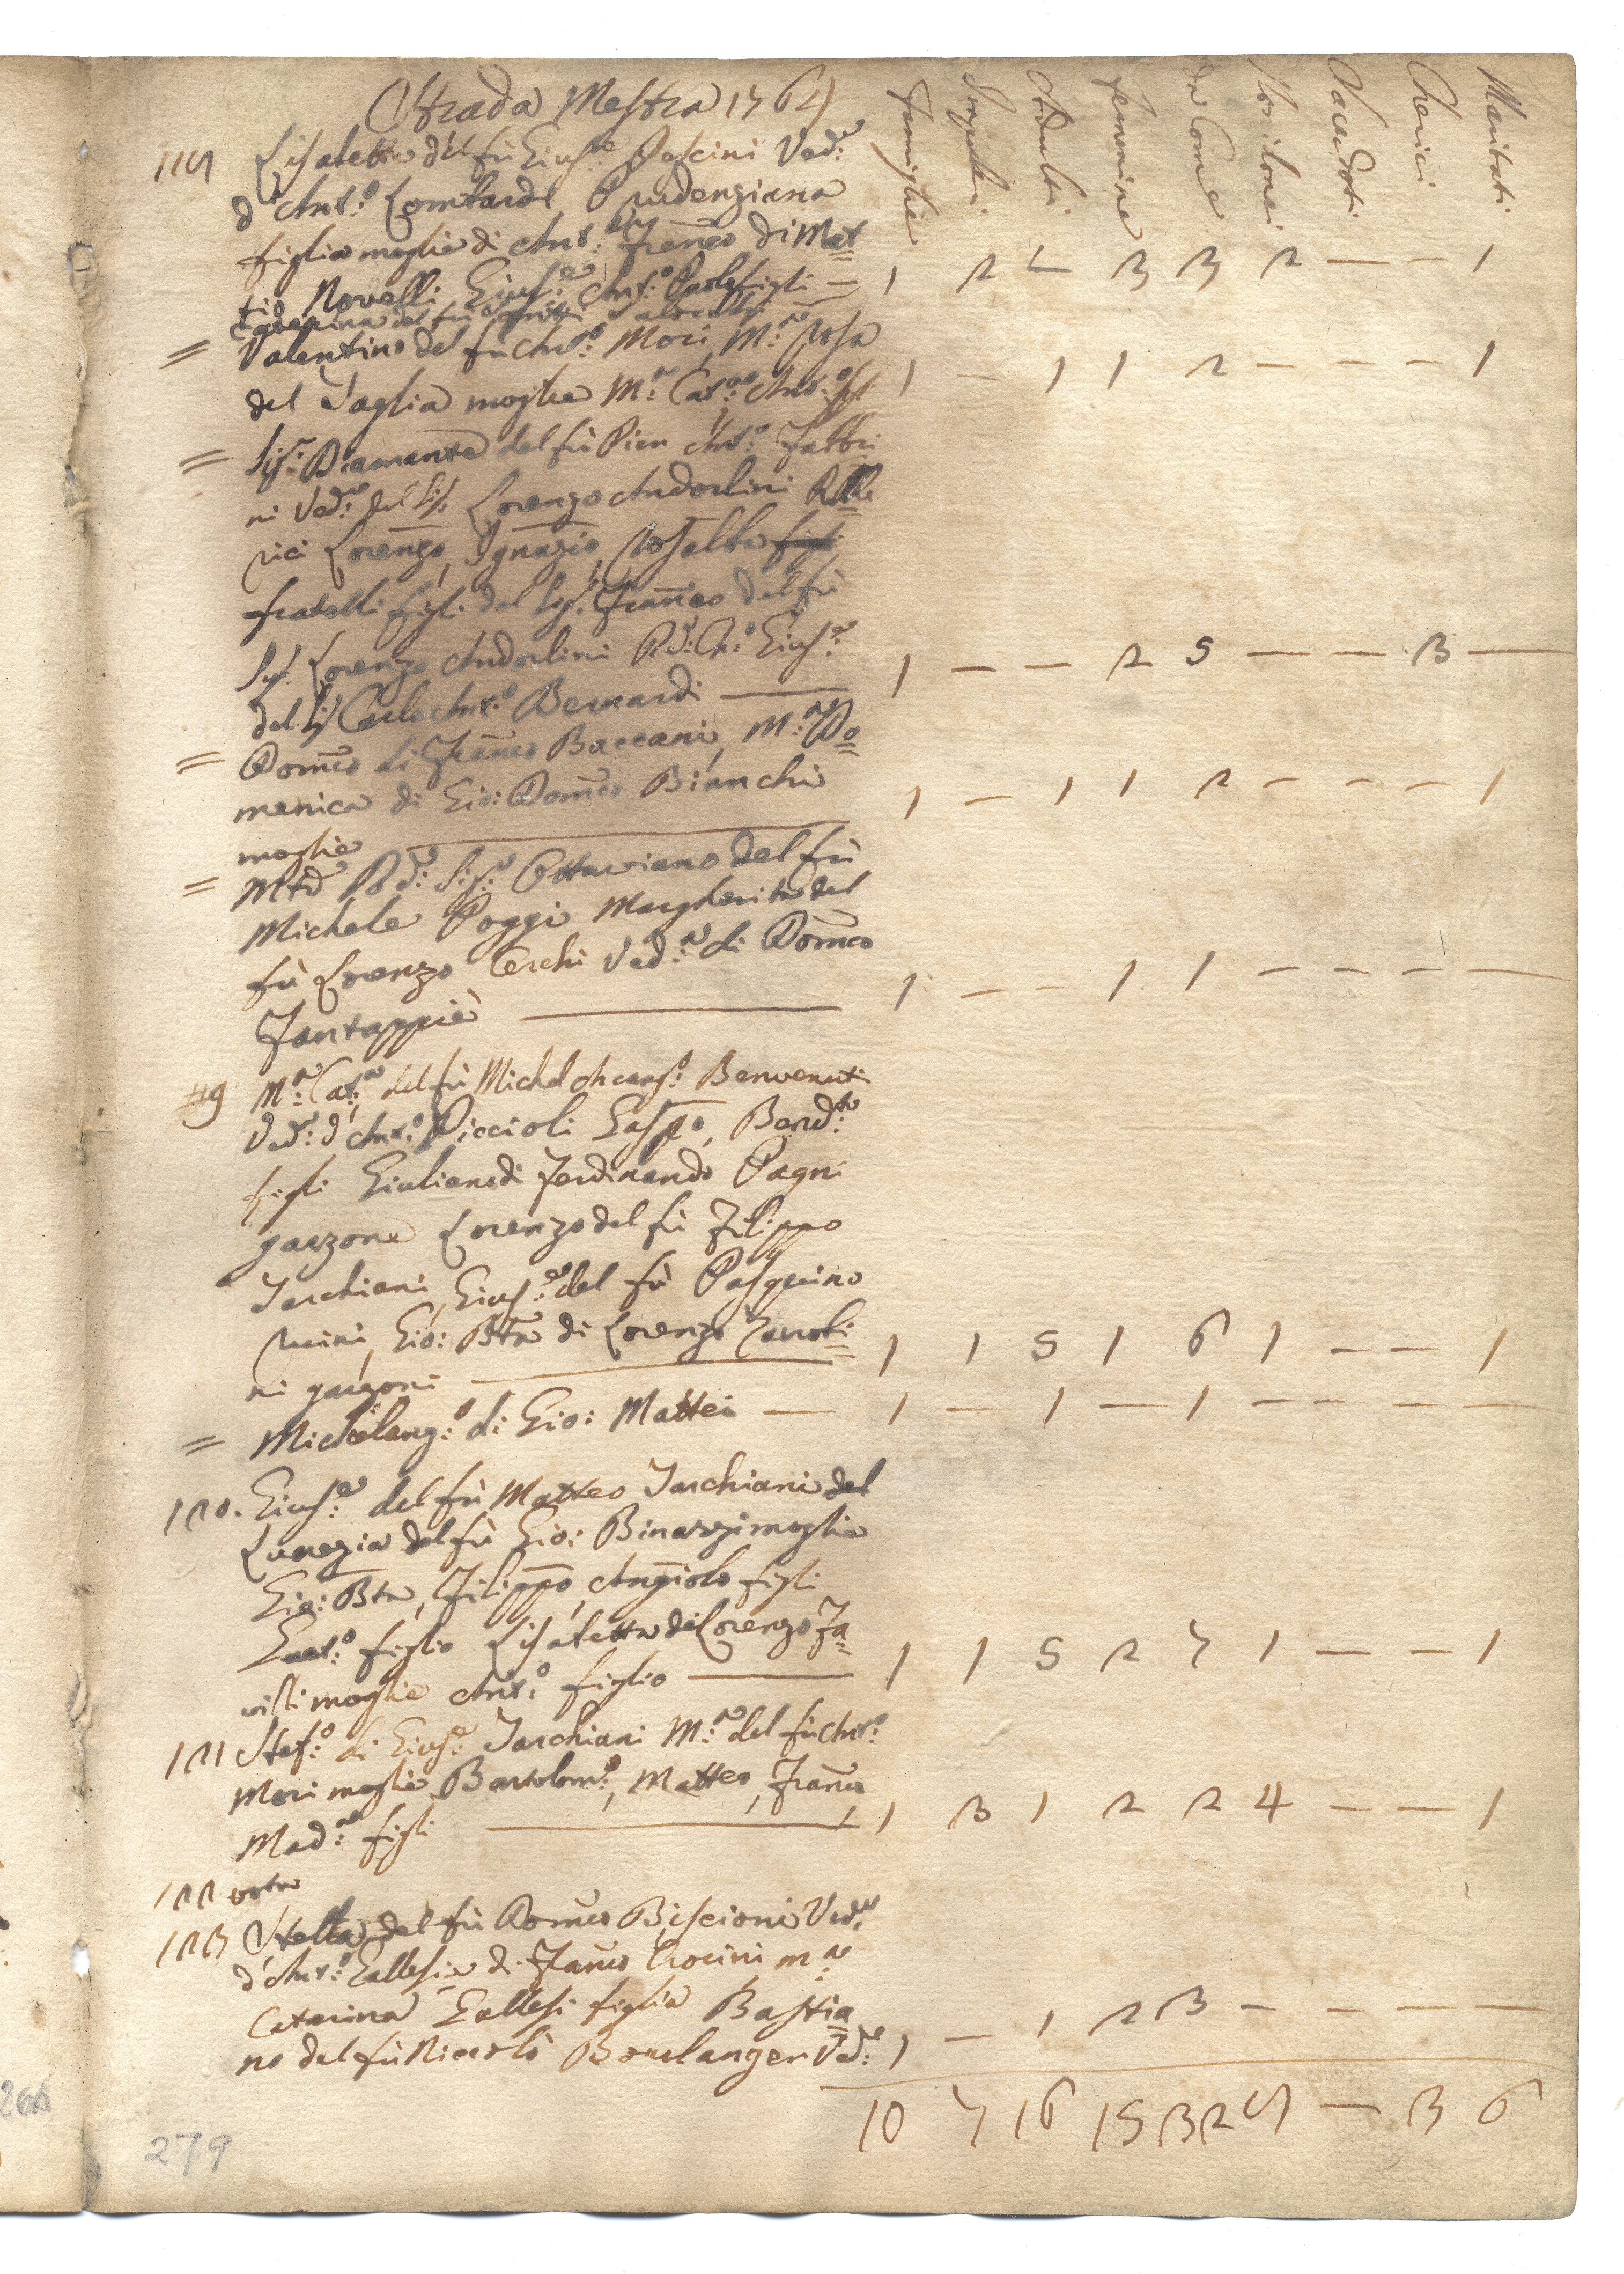 Strada Mestra 1764
Famiglie Adulti Femmine da Com:e Non Com:i Sacerdoti Cherici Maritati
Lisabetta del fù Gius:e Pascini Ved:a
d'Ant:o Lombardi, Prudenziana
figlia moglie di Ant: Fran:co di Mat=
tio Novelli Gius:e Ant:o Paolo figli — 1 2 3 3 2 — — 1
Caterina del fù
= Valentino del fù Ant:o Mori, M:a Rosa
del Taglia moglie M:a Cat:a Ant:o figli 1 — 1 1 2 — — — 1
= Sig:ra Diamante del fù Pier Ant:o Fabbri
ni Ved:a del Sig: Lorenzo Andorlini
rici Lorenzo, Ignazio, Rosalba
fratelli figli del Sig:r Fran:co del fù
Sig: Lorenzo Andorlini Gius:e
del Sig Carlo Ant:o Bernardi — 1 — — 2 5 — — 3 —
= Dom:co di Fran:co Baccani, M:a Do=
menica di Gio: Dom:co Bianchi
moglie — 1 — 1 1 2 — — — 1
= Ottaviano del fù
Michele Poggi Margherita del
fù Lorenzo Cerchi Ved:a di Dom:co
Fantappiè — 1 — — 1 1 — — — —
119 M:a Cat:a del fù Michel Arcang:o Benvenuti
Ved:a d'Ant:o Piccioli Gasp:o, Bened:to
figli Giuliano di Ferdinando Pagni
garzone Lorenzo del fù Filippo
Tarchiani, Gius:e del fù Pasquino
Nuini, Gio: Bta di Lorenzo Zanobi=
ni garzoni — 1 1 5 1 6 1 — — 1
= Michelang:o di Gio: Mattei — 1 — 1 — 1 — — — —
120. Gius:e del fù Matteo Tarchiani del
Lucrezia del fù Gio: Binazzi moglie
Gio: Bta, Filippo, Angiolo figli
figlio Lisabetta di Lorenzo Fa=
villi moglie Ant:o figlio — 1 1 5 2 7 1 — — 1
121 Stef:o di Gius:e Tarchiani M:a del fù Ant:o
Mori moglie, Bartolom:o, Matteo, Fran:co
Mad:a figli — 1 3 1 2 2 4 — — 1
122 vota
123 Stella del fù Dom:co Biscioni Ved:a
d'Ant:o Gallesi di Fran:co Crocini m:a
Caterina Gallesi figlia Bastia=
no del fù Niccolò Boulanger Ved:o 1 — 1 2 3 — — — —
10 7 16 15 32 9 — 3 6
266
279